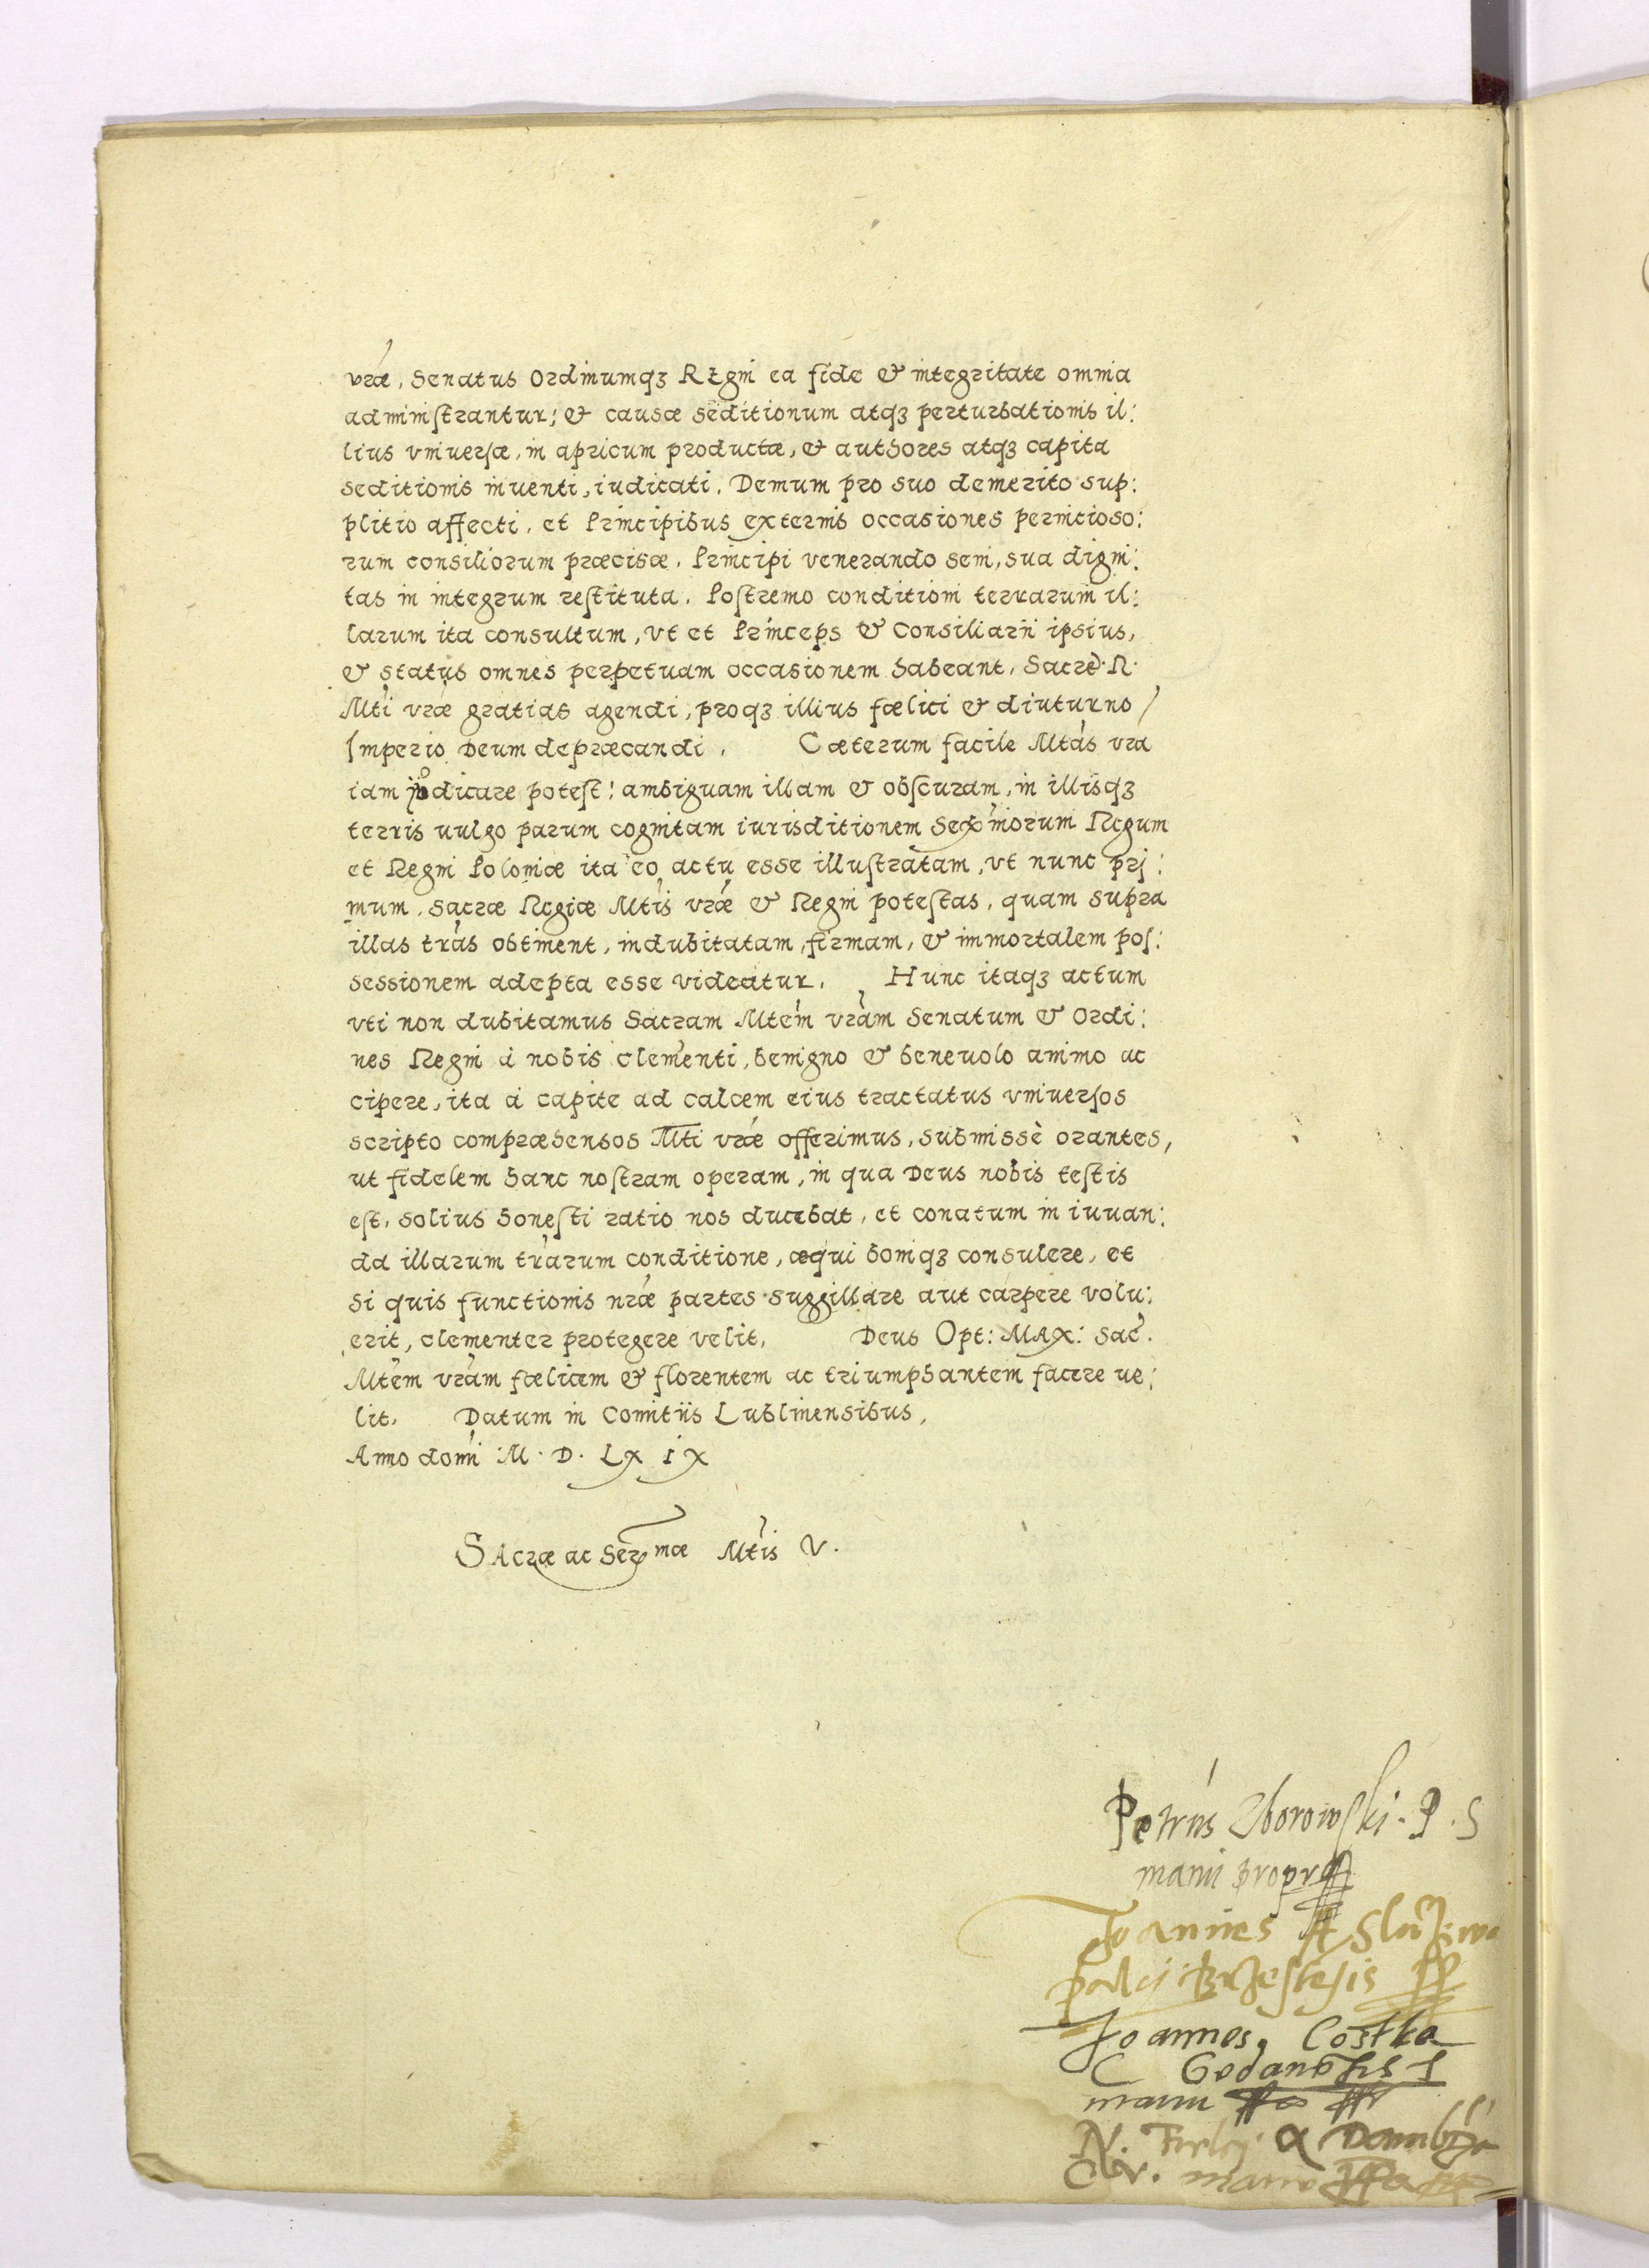 vræ, Senatus Ordinumqȝ Regni ea fide & integritate omnia
administrantur; & causæ seditionum atqȝ perturbationis il:
lius vniuersæ, in apricum productæ, & authores atqȝ capita
seditionis inuenti, iudicati, Demum pro suo demerito sup:
plitio affecti, et Principibus externis occasiones pernitioso:
rum consiliorum præcisæ, Principi venerando seni, sua digni:
tas in integrum restituta. Postremo conditioni terrarum il:
larum ita consultum, vt et Princeps & Consiliarii ipsius,
& status omnes perpetuam occasionem habeant, Sacrę R.
Mti vræ gratias agendi, proqȝ illius fœlici & diuturno
Imperio Deum depræcandi. Cæterum facile Mtas vra
iam iudicare potest! ambiguam illam & obscuram, in illisqȝ
terris uulgo parum cognitam iurisditionem Serenissimorum Regum
et Regni Poloniæ ita eo actu esse illustratam, vt nunc pri:
mum, Sacræ Regiæ Mtis vræ & Regni potestas, quam supra
illas tras obtinent, indubitatam, firmam, & immortalem pos:
sessionem adepta esse videatur. Hunc itaqȝ actum
vti non dubitamus Sacram Mtem vram Senatum & Ordi:
nes Regni à nobis clementi, benigno & beneuolo animo ac
cipere, ita à capite ad calcem eius tractatus vniuersos
scripto compræhensos Mti vræ offerimus, submissè orantes,
ut fidelem hanc nostram operam, in qua Deus nobis testis
est, solius honesti ratio nos ducebat, et conatum in iuuan:
da illarum trarum conditione, æqui boniqȝ consulere, et
si quis functionis nræ partes suggillare aut carpere volu:
erit, clementer protegere velit. Deus Opt: MAX: Sac.
Mtem vram fœlicem & florentem ac triumphantem facere ue:
lit. Datum in Comitiis Lublinensibus,
Anno domi M. D. LXIX
SAcræ ac Serᵐæ Mtis V.
Petrus Zborowski. P. S
manu propria
Joannes A Sluzewo
palci Brzestesis pp
Joannes, Costka
C Gedanēsis S
manu
N. Firlej a Dambro
C W. manu